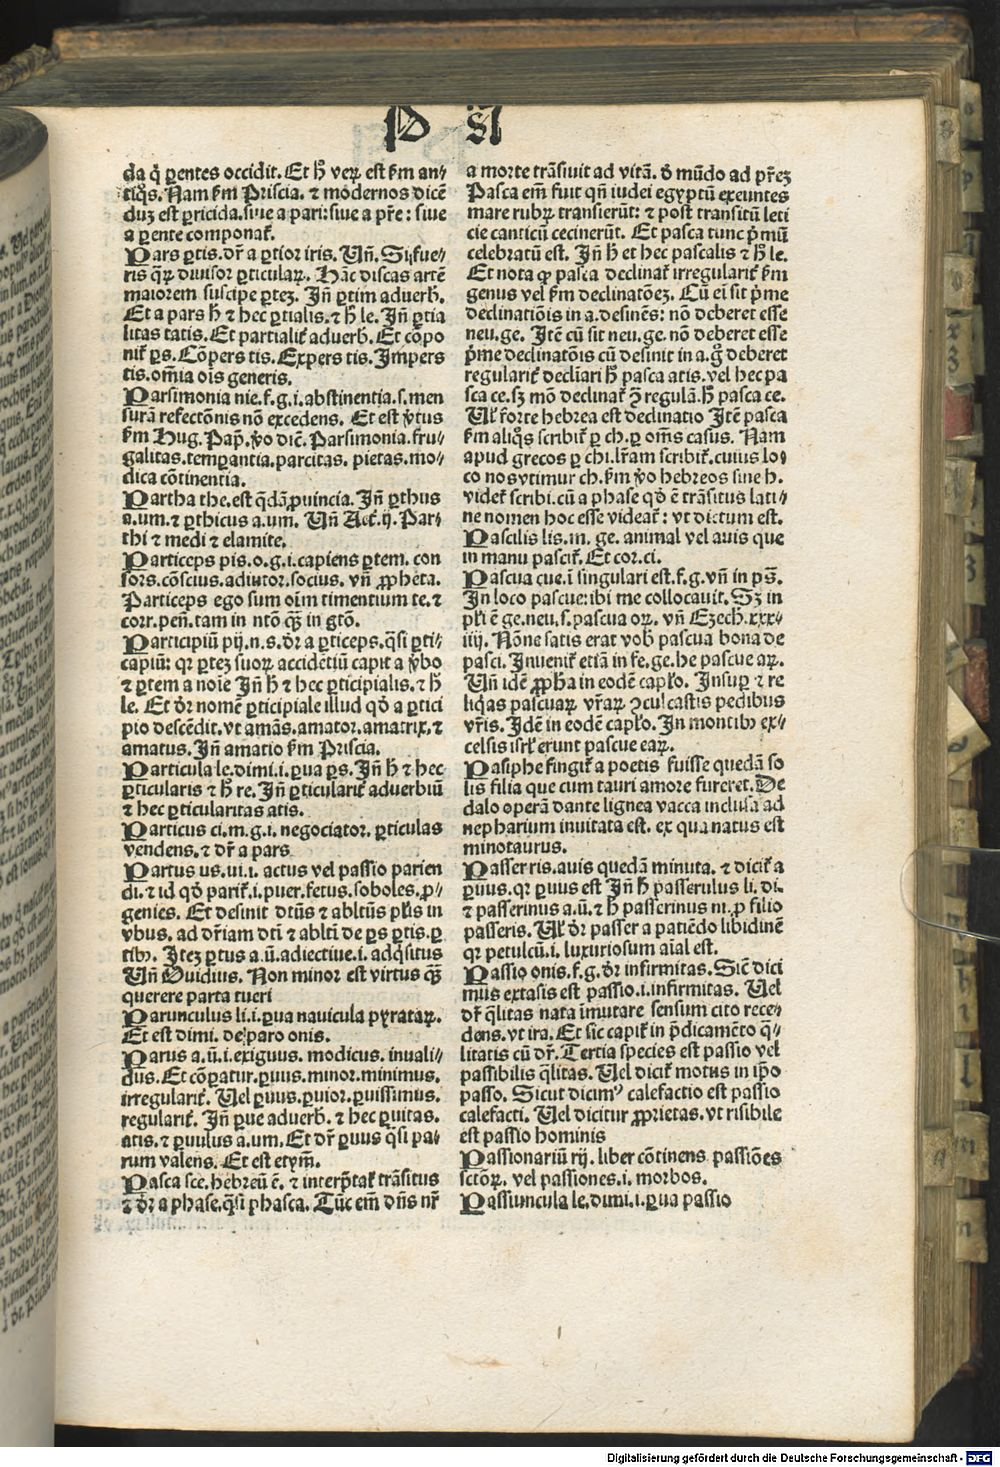 P A
da q̇ ꝑentes occidit. Et hꝰ veꝝ est ẜm an⸗
tiq̇s. Nam ẜm Priscia. ⁊ modernos dicē
duꝫ est ꝑricida. siue a pari: siue a pr̄e: siue
a ꝑente componat̄.
Pars ꝑtis. dr̄ a ꝑtior iris. Vn̄. Si fue⸗
ris q̄ꝝ diuisor ꝑticulaꝝ. Hāc discas artē
maiorem suscipe ꝑteꝫ. Jn̄ ꝑtim aduerb̄.
Et a pars h̄ ⁊ hec ꝑtialis. ⁊ h̄ le. Jn̄ ꝑtia
litas tatis. Et partialit̄ aduerb̄. Et cōpo
nit̄ ꝑs. Cōpers tis. Expers tis. Jmpers
tis. om̄ia oīs generis.
Parsimonia nie. f. g. i. abstinentia. s. men
surā refectōnis nō excedens. Et est v̓tus
ẜm Hug. Pap̄. v̓o dic̄. Parsimonia. fru⸗
galitas. temꝑantia. parcitas. pietas. mo⸗
dica cōtinentia.
Partha the. est q̄dā ꝓuincia. Jn̄ ꝑthus
a. um. ⁊ ꝑthicus a. um. Vn̄ Act̄. ij. Par⸗
thi ⁊ medi ⁊ elamite.
Particeps pis. o. g. i. capiens ꝑtem. con
sors. cōscius. adiutor. socius. vn̄ ꝓpheta.
Particeps ego sum oīm timentium te. ⁊
corr. pen̄. tam in ntō qꝫ in gtō.
Participiū pij. n. s. dr̄ a ꝑticeps. q̄si ꝑti⸗
capiuꝫ: qꝛ ꝑteꝫ suoꝝ accidētiū capit a v̓bo
⁊ ꝑtem a noīe Jn̄ h̄ ⁊ hec ꝑticipialis. ⁊ h̄
le. Et dr̄ nomē ꝑticipiale illud qď a ꝑtici
pio descēdit. vt amās. amator. amatrix. ⁊
amatus. Jn̄ amatio ẜm Priscia.
Particula le. dimi. i. ꝑua ꝑs. Jn̄ h̄ ⁊ hec
ꝑticularis ⁊ h̄ re. Jn̄ ꝑticularit̄ aduerbiū
⁊ hec ꝑticularitas atis.
Particus ci. m. g. i. negociator. ꝑticulas
vendens. ⁊ dr̄ a pars
Partus us. ui. i. actus vel passio parien
di. ⁊ id qď parit̄. i. puer. fetus. soboles. ꝓ⸗
genies. Et desinit dtūs ⁊ abltūs pl̄is in
vbus. ad dr̄iam dtī ⁊ abltī de ꝑs ꝑtis. ꝑ
tibꝫ. Jteꝫ ꝑtus a. ū. adiectiue. i. adq̄situs
Vn̄ Ouidius. Non minor est virtus q̄ꝫ
querere parta tueri
Parunculus li. i. ꝑua nauicula pyrataꝝ.
Et est dimi. de paro onis.
Parus a. ū. i. exiguus. modicus. inuali⸗
dus. Et cōꝑatur. ꝑuus. minor. minimus.
irregularit̄. Vel ꝑuus. ꝑuior. ꝑuissimus.
regularit̄. Jn̄ ꝑue aduerb̄. ⁊ hec ꝑuitas.
atis. ⁊ ꝑuulus a. um. Et dr̄ ꝑuus q̄si pa⸗
rum valens. Et est etym̄.
Pasca sce. hebreū ē. ⁊ interp̄tat̄ trāsitus
⁊ dr̄ a phase. q̄si phasca. Tūc em̄ dn̄s nr̄
a morte trāsiuit ad vitā. d̓ mūdo ad pr̄eꝫ
Pasca em̄ fuit qn̄ iudei egyptū exeuntes
mare rubꝝ transierūt: ⁊ post transitū leti
cie canticū cecinerūt. Et pasca tunc p̄mū
celebratū est. Jn̄ h̄ et hec pascalis ⁊ h̄ le.
Et nota ꝙ pasca declinat̄ irregularit̄ ẜm
genus vel ẜm declinatōeꝫ. Cū ei̇ sit p̄me
declinatiōis in a. desinēs: nō deberet esse
neu. ge. Jtē cū sit neu. ge. nō deberet esse
p̄me declinatōis cū desinit in a. q̄ deberet
regularit̄ declīari h̄ pasca atis. vel hec pa
sca ce. sꝫ mō declinat̄ ꝯ regulā. h̄ pasca ce.
Vl̄ forte hebrea est declinatio Jtē pasca
ẜm aliq̄s scribit̄ ꝑ ch. ꝑ om̄s casus. Nam
apud grecos ꝑ chi. lr̄am scribit̄. cuius lo⸗
co nos vtimur ch. ẜm v̓o hebreos sine h.
videt̄ scribi. cū a phase qď ē trāsitus lati⸗
ne nomen hoc esse videat̄: vt dictum est.
Pascilis lis. m. ge. animal vel auis que
in manu pascit̄. Et cor. ci.
Pascua cue. ī singulari est. f. g. vn̄ in pš.
Jn loco pascue: ibi me collocauit. Sꝫ in
pl̄i ē ge. neu. s. pascua oꝝ. vn̄ Ezech. xxx⸗
iiij. Nōne satis erat vob̄ pascua bona de
pasci. Jnuenit̄ etiā in fe. ge. he pascue aꝝ.
Vn̄ idē ꝓp̄ha in eodē cap̄lo. Jnsuꝑ ⁊ re
liq̄as pascuaꝝ vr̄aꝝ ꝯculcastis pedibus
vr̄is. Jdē in eodē cap̄lo. Jn montibꝫ ex⸗
celsis isrl̄ erunt pascue eaꝝ.
Pasiphe fingit̄ a poetis fuisse quedā so
lis filia que cum tauri amore fureret. De
dalo operā dante lignea vacca inclusa ad
nepharium inuitata est. ex qua natus est
minotaurus.
Passer ris. auis quedā minuta. ⁊ dicit̄ a
ꝑuus. qꝛ ꝑuus est Jn̄ h̄ passerulus li. di.
⁊ passerinus a. ū. ⁊ h̄ passerinus ni. ꝓ filio
passeris. Vl̄ dr̄ passer a patiēdo libidinē
qꝛ petulcū. i. luxuriosum aīal est.
Passio onis. f. g. dr̄ infirmitas. Sic̄ dici
mus extasis est passio. i. infirmitas. Vel
dr̄ q̄litas nata īmutare sensum cito rece⸗
dens. vt ira. Et sic capit̄ in p̄dicamēto q̄⸗
litatis cū dr̄. Tertia species est passio vel
passibilis q̄litas. Vel dicit̄ motus in ip̄o
passo. Sicut dicimꝰ calefactio est passio
calefacti. Vel dicitur ꝓprietas. vt risibile
est passio hominis
Passionariū rij. liber cōtinens passiōes
sctōꝝ. vel passiones. i. morbos.
Passiuncula le. dimi. i. ꝑua passio
Digitalisierung gefördert durch die Deutsche Forschungsgemeinschaft - DFG